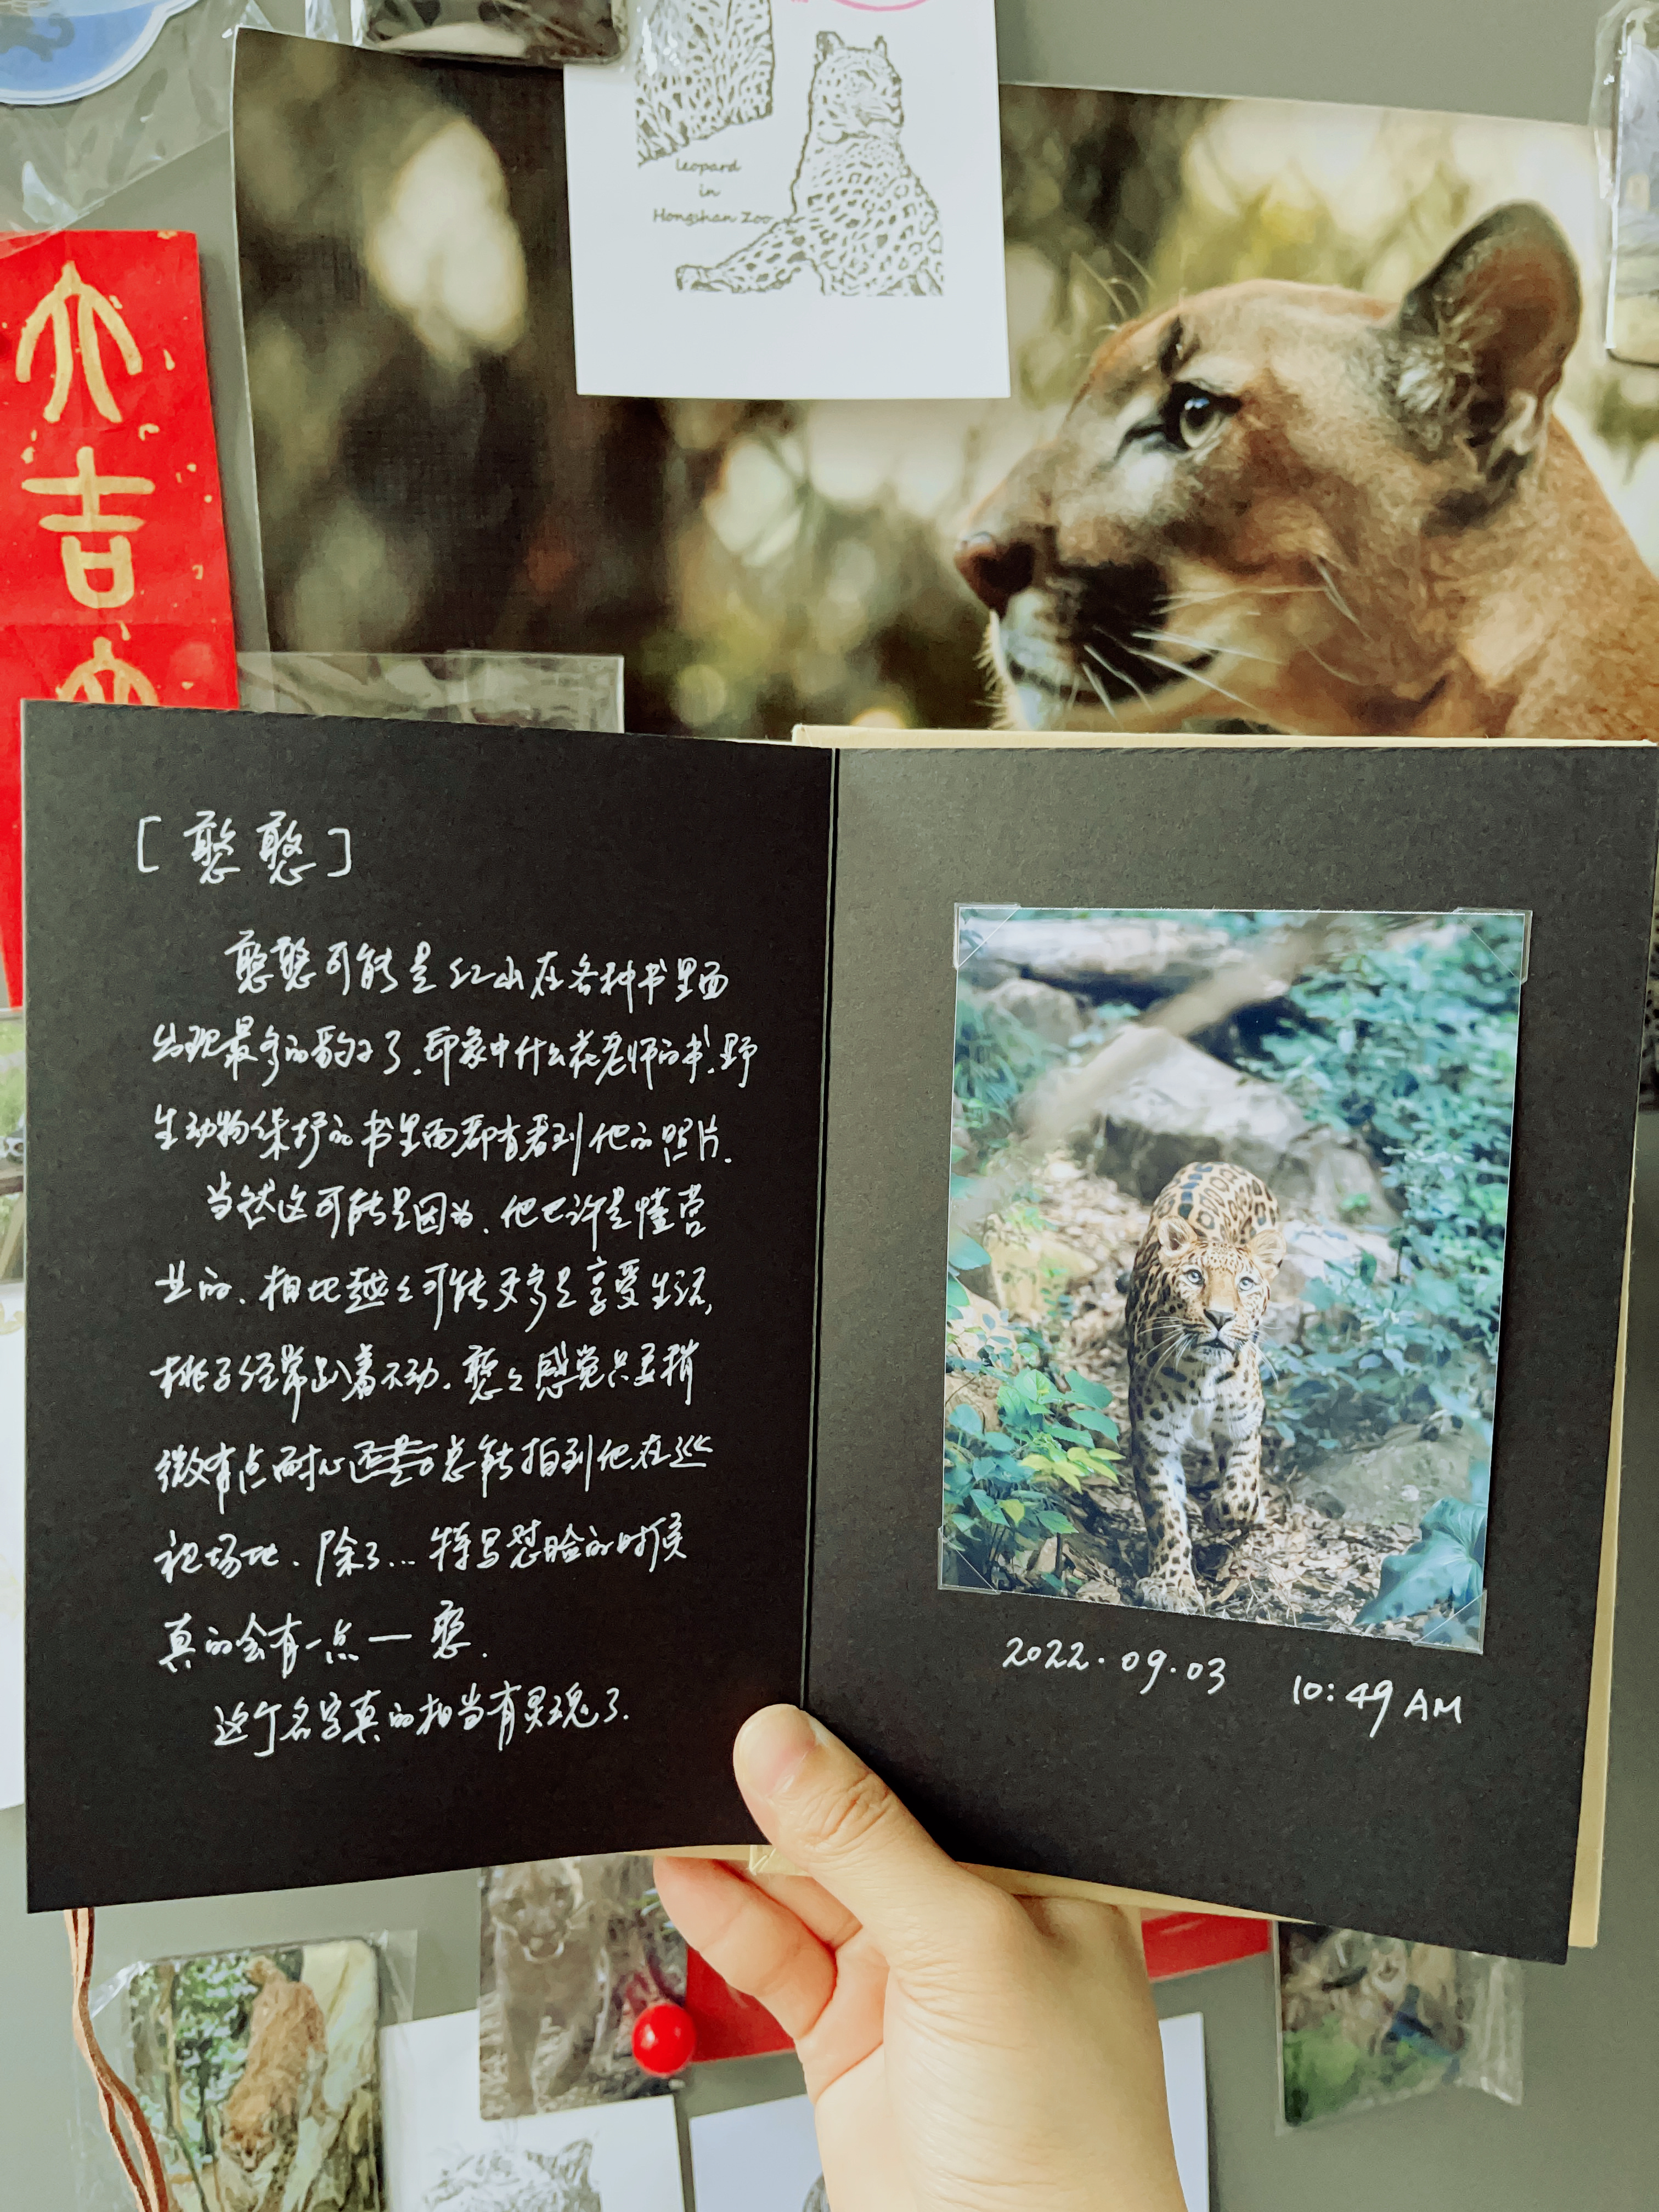 leopard
in
Hongshan Zoo
大
吉
大
[憨憨]
憨憨可能是红山在各种书里面
出现最多的豹子了.印象中什么花老师的书、野
生动物保护的书里面都有看到他的照片.
当然这可能是因为、他也许是懂营
业的、相比越々可能更多是享受生活,
桃子经常趴着不动.憨々感觉只要稍
微有点耐心总能拍到他在巡
视场地.除了...特写怼脸的时候
真的会有一点一憨.
这个名字真的相当有灵魂了.
2022.09.03 10:49 AM